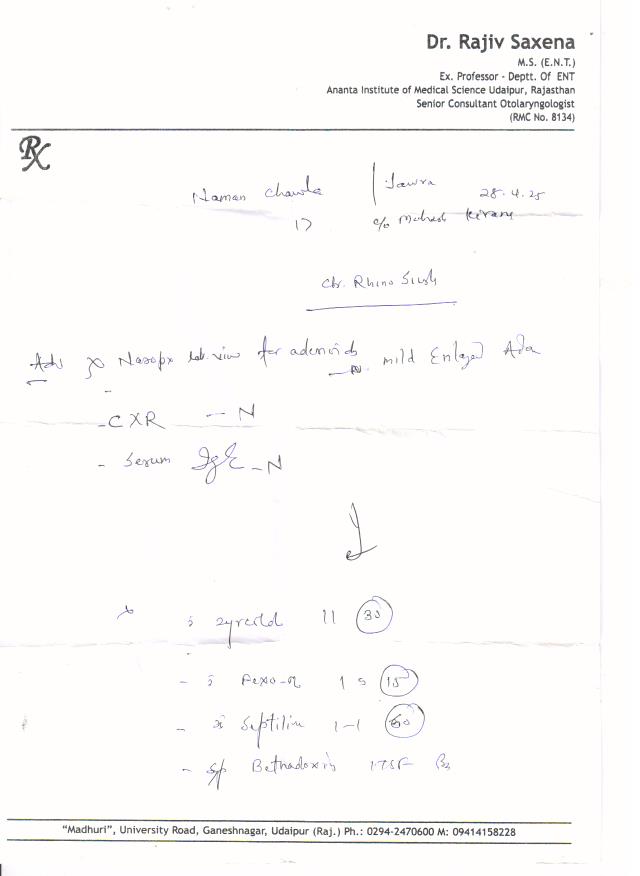 Dr. Rajiv Saxena
M.S. (E.N.T.)
Ex. Professor - Deptt. Of ENT
Ananta Institute of Medical Science Udaipur, Rajasthan
Senior Consultant Otolaryngologist
(RMC No. 8134)
Rx
Naman Chawla / Jawra 28.4.25
17 c/o Mahesh
Chr. Rhino
Adv Nasopx lat. view for adenoids - N mild Enlaged
- CXR - N
- Serum IgE - N
11 30
- 1 15
- Septilin 1-1 60
- Syp 1 TSF
"Madhuri", University Road, Ganeshnagar, Udaipur (Raj.) Ph.: 0294-2470600 M: 09414158228